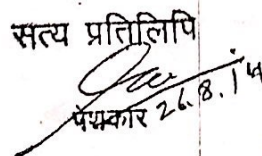 सत्य प्रतिलिपि
पेशकार 26.8.14